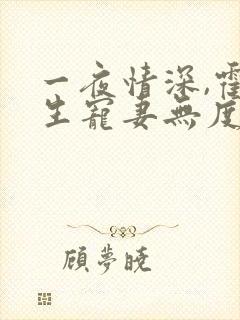 一夜情深,霍
生寵妻無度
顧夢曉